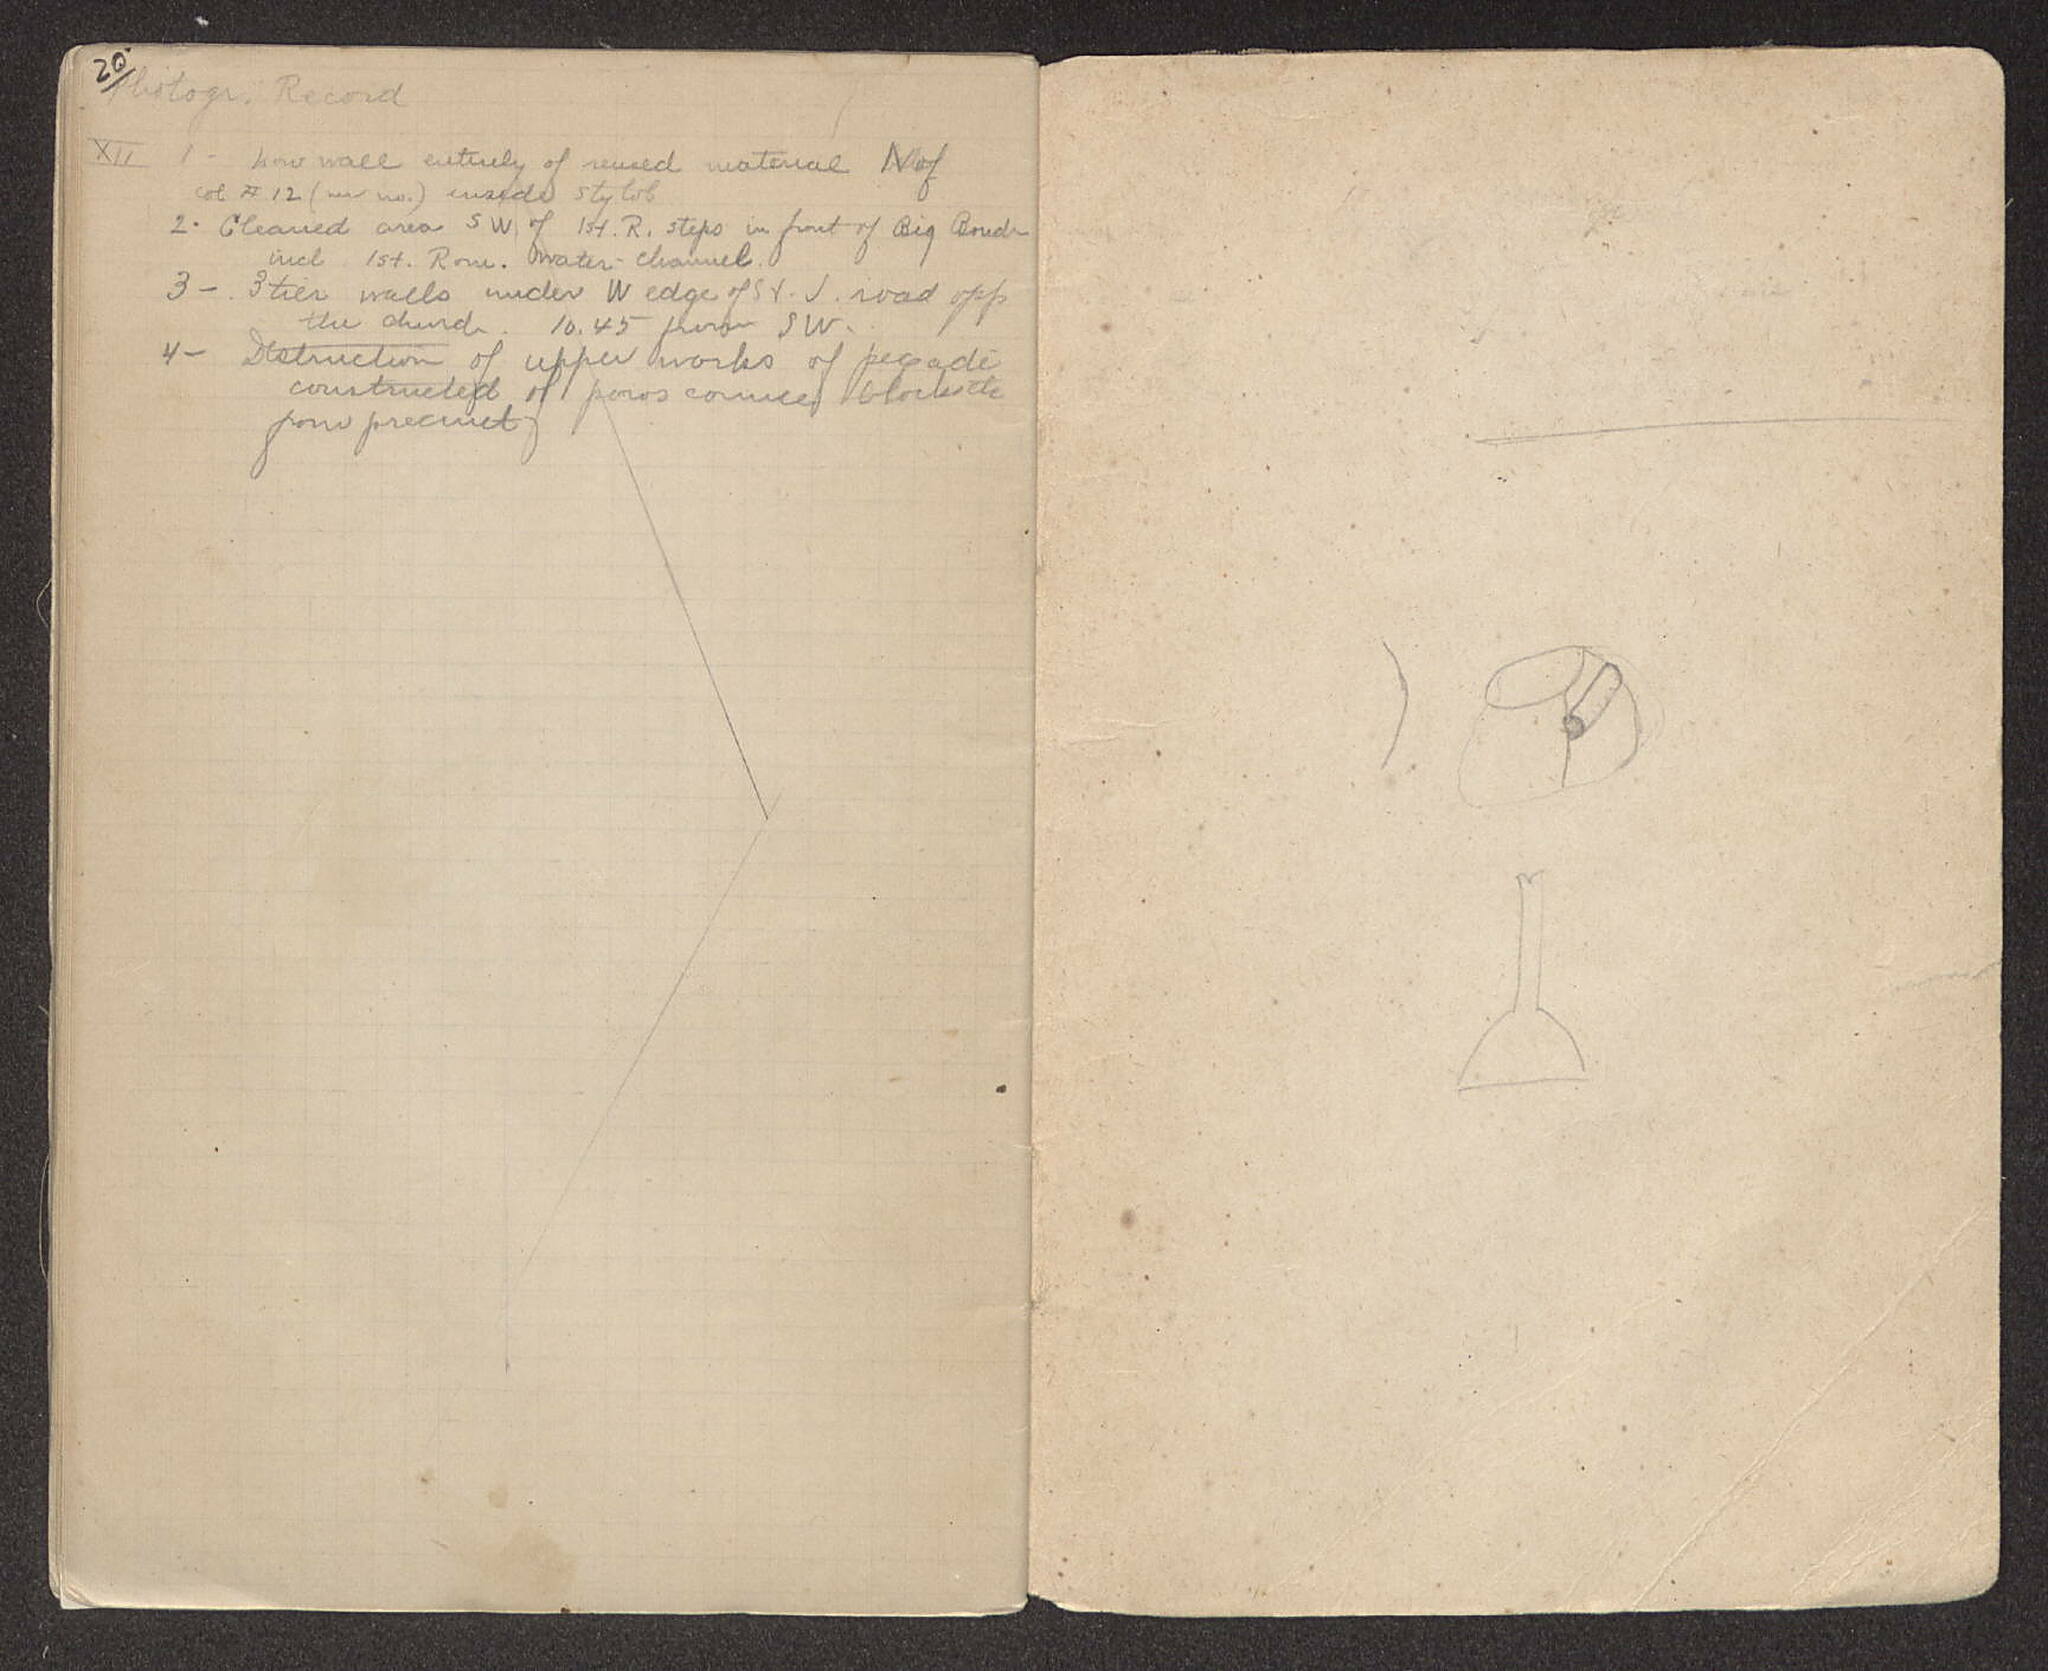 20
Photogr. Record
XII 1 - Low wall entirely of reused material N of
col # 12 (nw no.) inside stylob
2. Cleaned area SW of 1st. R. steps in front of Big
incl 1st. Rom. water-channel.
3 - 3 tier walls under W edge of St. J. road opp
the church. 10.45 from SW.
4 - Destruction of upper works of
constructed of poros cornice blocks etc
from precinct